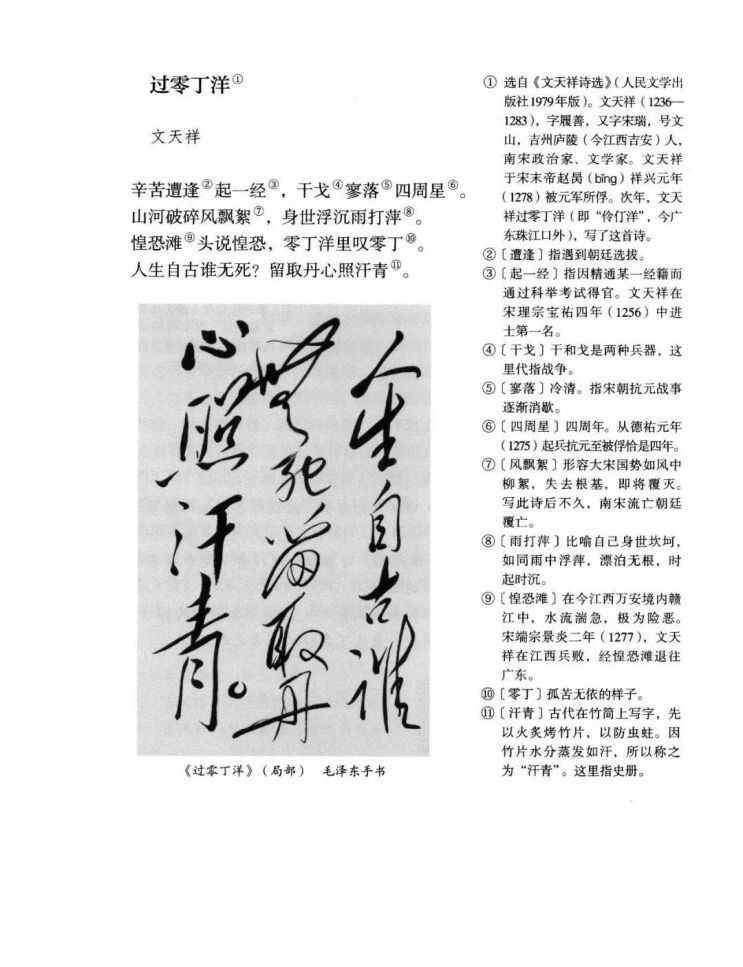 过零丁洋①
文天祥
辛苦遭逢②起一经③，干戈④寥落⑤四周星⑥。
山河破碎风飘絮⑦，身世浮沉雨打萍⑧。
惶恐滩⑨头说惶恐，零丁洋里叹零丁⑩。
人生自古谁无死？留取丹心照汗青⑪。
人生自古谁
无死留取丹
心照汗青。
《过零丁洋》（局部） 毛泽东手书
① 选自《文天祥诗选》（人民文学出
版社1979年版）。文天祥（1236—
1283），字履善，又字宋瑞，号文
山，吉州庐陵（今江西吉安）人，
南宋政治家、文学家。文天祥
于宋末帝赵昺（bǐng）祥兴元年
（1278）被元军所俘。次年，文天
祥过零丁洋（即“伶仃洋”，今广
东珠江口外），写了这首诗。
②〔遭逢〕指遇到朝廷选拔。
③〔起一经〕指因精通某一经籍而
通过科举考试得官。文天祥在
宋理宗宝祐四年（1256）中进
士第一名。
④〔干戈〕干和戈是两种兵器，这
里代指战争。
⑤〔寥落〕冷清。指宋朝抗元战事
逐渐消歇。
⑥〔四周星〕四周年。从德祐元年
（1275）起兵抗元至被俘恰是四年。
⑦〔风飘絮〕形容大宋国势如风中
柳絮，失去根基，即将覆灭。
写此诗后不久，南宋流亡朝廷
覆亡。
⑧〔雨打萍〕比喻自己身世坎坷，
如同雨中浮萍，漂泊无根，时
起时沉。
⑨〔惶恐滩〕在今江西万安境内赣
江中，水流湍急，极为险恶。
宋端宗景炎二年（1277），文天
祥在江西兵败，经惶恐滩退往
广东。
⑩〔零丁〕孤苦无依的样子。
⑪〔汗青〕古代在竹简上写字，先
以火炙烤竹片，以防虫蛀。因
竹片水分蒸发如汗，所以称之
为“汗青”。这里指史册。